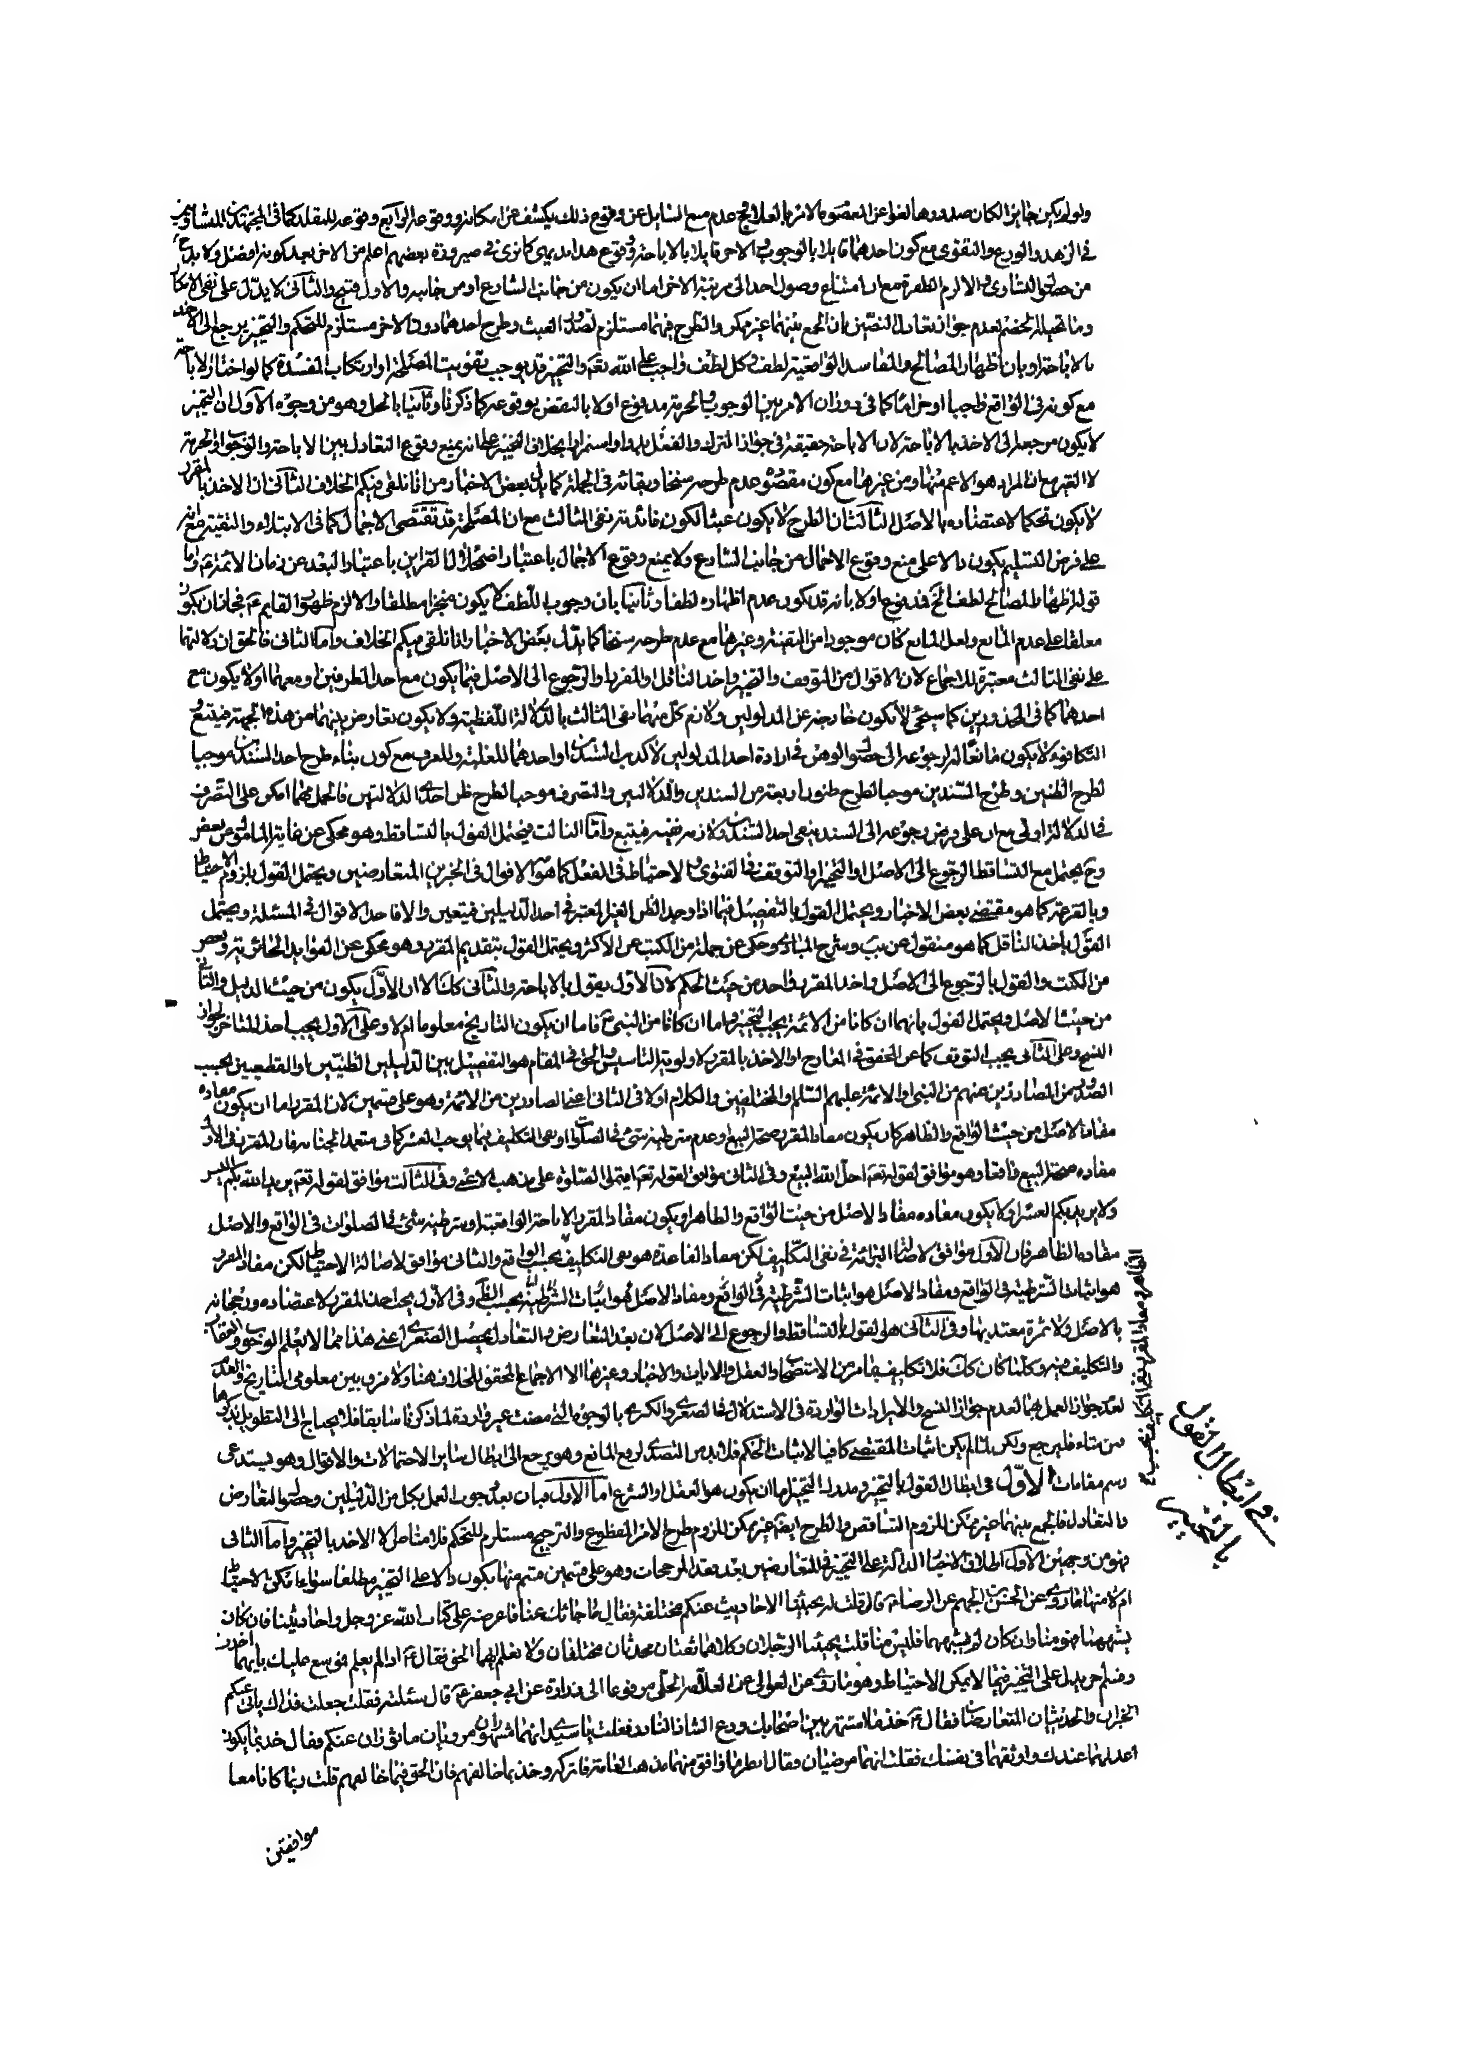 ولو لم يكن جايزا لكان صدورها لغوا عن المعصوم بالامر بالعلاج مع عدم السايل عن وقوع ذلك يكشف عن امكانه ووقوعه الواقع ووقوعه للمقلد كما فى المجتهدين المتساويين
فى الزهد والورع والتقوى مع كون احدهما قايلا بالوجوب والاخر قايلا بالاباحة ووقوع هذا بديهى كما نرى فى صيرورة بعضهم اعلم من الاخر بعد كونه افضل ولا بد ح
من حصول التساوى والا لزم الطفرة مع ان امتناع وصول احد الى مرتبة الاخر اما ان يكون من جانب الشارع او من جانبه والاول قبيح والثانى لا يدل على نفى الامكان
وما تخيله الخصم لعدم جواز تعادل النصين بان الجمع بينهما غير ممكن والطرح فيهما مستلزم لصدور العبث وطرح احدهما دون الاخر مستلزم للتحكم والتخيير يرجع الى الاخذ
بالاباحة او بان اظهار المصالح والمفاسد الواقعية لطف وكل لطف واجب على الله تعم والتخيير قد يوجب تفويت المصلحة او ارتكاب المفسدة كما لو اختار الاباحة
مع كونه فى الواقع واجبا او حراما كما فى دوران الامر بين الوجوب والحرمة مدفوع اولا بالنقض بوقوعه كما ذكرنا وثانيا بالحل وهو من وجوه الاول ان التخيير
لا يكون مرجعه الى الاخذ بالاباحة لان الاباحة حقيقة فى جواز الترك والفعل بدوا واستمرارا بخلاف التخيير على انه يمنع وقوع التعادل بين الاباحة والوجوب او الحرمة
لا الغير مع ان المراد هو الاعم منهما ومن غيرهما مع كون مقصوده عدم طرحه سنخا وبقائه فى الجملة كما يدل بعض الاخبار من انا نلقى فيكم الخلاف الثانى ان الاخذ بالمقرر
لا يكون تحكما لاعتضاده بالاصل الثالث ان الطرح لا يكون عبثا لكون فائدته نفى الثالث مع ان المصلحة قد تقتضى الاجمال كما فى الابتداء والتقية مع انه
على فرض التسليم يكون دالا على منع وقوع الاحتمال من جانب الشارع ولا يمنع وقوع الاجمال باعتبار اضمحلال القراين باعتبار البعد عن زمان الائمة ع واما
قوله اظهار المصالح لطف الخ فمدفوع اولا بانه قد يكون عدم اظهاره لطفا وثانيا بان وجوب اللطف لا يكون منجزا مطلقا والا لزم ظهور القايم ع فجاز ان يكون
معلقا على عدم المانع ولعل المانع كان موجودا من التقية وغيرها مع عدم طرحه سنخا كما يدل بعض الاخبار وانا نلقى فيكم الخلاف واما الثانى فالحق ان دلالتهما
على نفى الثالث معتبرة للاجماع لان الاقوال من التوقف والتخيير واخذ الناقل او المقرر او الرجوع الى الاصل فيما يكون مع احد الطرفين او معهما او لا يكون مع
احدهما كما فى المحذورين كما سيجئ لا يكون خارجة عن المدلولين ولانه كل منهما ينفى الثالث بالدلالة اللفظية ولا يكون تعارض بينهما من هذه الجهة فيتبع و
التكافوء لا يكون مانعا له لرجوعه الى حصول الوهن فى ارادة احد المدلولين لا كذب السندين او احدهما للغلبة وللعرف مع كون بناء طرح احد السندين موجبا
لطرح الظنين وطرح السندين موجبا لطرح ظنون اربعة من السندين والدلالتين والتصرف موجبا لطرح ظن احدى الدلالتين فالحمل مهما امكن على التصرف
فى الدلالة اولى مع ان على فرض رجوعه الى السند ينفى احد السندين ولازمه ضيه فيتبع واما الثالث فيحتمل القول بالتساقط وهو محكى عن غاية المامول عن بعض
وح يحتمل مع التساقط الرجوع الى الاصل او التخيير او التوقف فى الفتوى والاحتياط فى الفعل كما هو الاقوال فى الخبرين المتعارضين ويحتمل القول بلزوم الاحتياط
وبالقرعة كما هو مقتضى بعض الاخبار ويحتمل القول بالتفصيل فيما اذا وجد الظن الغير المعتبر فى احد الدليلين فيتعين والا فاحد الاقوال فى المسئلة ويحتمل
القول باخذ الناقل كما هو منقول عن يب وشرح المبادى وحكى عن جملة من الكتب عن الاكثر ويحتمل القول بتقديم المقرر وهو محكى عن الفوايد الحائرية وبعض
من الكتب والقول بالرجوع الى الاصل واخذ المقرر واحد من حيث الحكم لان الاول يقول بالاباحة والثانى كك الا ان الاول يكون من حيث الدليل والثانى
من حيث الاصل ويحتمل القول بانهما ان كانا من الائمة يجب التخيير واما ان كانا من النبى ص فاما ان يكون التاريخ معلوما ام لا وعلى الاول يجب اخذ المتاخر لجواز
النسخ وعلى الثانى يجب التوقف كما عن المحقق فى المعارج او الاخذ بالمقرر لاولوية التاسيس والحق فى المقام هو التفصيل بين الدليلين الظنيين او القطعيين بحسب
الصدور من الصادرين عنهم من النبى او الائمة عليهم السلام والمختلفين والكلام اولا فى الثانى اعنى الصادرين من الائمة وهو على قسمين لان المقرر اما ان يكون مفاده
مفاد الاصل من حيث الواقع والظاهر كان يكون مفاد المقرر صحة البيع او عدم شرطية شئ فى الصلوة او نفى التكليف فيما يوجب العسر كما فى متعمد الجنابة فان المقرر فى الاول
مفاده صحة البيع واقعا وهو موافق لقوله تعم احل الله البيع وفى الثانى موافق لقوله تعم اقيموا الصلوة على مذهب الاعمى وفى الثالث موافق لقوله تعم يريد الله بكم اليسر
ولا يريد بكم العسر او لا يكون مفاده مفاد الاصل من حيث الواقع والظاهر او يكون مفاد المقرر الاباحة الواقعية او شرطية شئ فى الصلوات فى الواقع والاصل
مفاده الظاهر فان الاول موافق لاصالة البرائة فى نفى التكليف لكن مفاد القاعدة هو نفى التكليف بحسب الواقع والثانى موافق لاصالة الاحتياط لكن مفاد المقرر
هو اثبات الشرطية فى الواقع ومفاد الاصل هو اثبات الشرطية فى الواقع ومفاد الاصل هو اثبات الشرطية بحسب الظاهر وفى الاول يجب اخذ المقرر لاعتضاده ورجحانه
بالاصل ولا ثمرة معتد بها وفى الثانى هو القول بالتساقط والرجوع الى الاصل لان بعد التعارض والتعادل يحصل الصغرى اعنى هذا مما لا يعلم الوجوب والعقاب
والتكليف فيه وكلما كان كك فلا تكليف فيه لما مر من الاستصحاب والعقل والايات والاخبار وغيرها الا الاجماع المحقق للخلاف هنا ولا فرق بين معلومى التاريخ والعدم
لعدم جواز العمل بهما لعدم جواز النسخ والايرادات الواردة فى الاستدلال فى الصغرى والكبرى بالوجوه التى مضت غير واردة لما ذكرنا سابقا فلا يحتاج الى التطويل بذكرها
من شاء فليرجع ولكن لما لم يكن اثبات المقتضى كافيا لاثبات الحكم فلا بد من التصدى لرفع المانع وهو يرجع الى ابطال ساير الاحتمالات والاقوال وهو يستدعى
رسم مقامات الاول فى ابطال القول بالتخيير ومدرك التخيير اما ان يكون هو العقل او الشرع اما الاول فبان بعد وجوب العمل بكل من الدليلين وحصول التعارض
والتعادل فالجمع بينهما غير ممكن للزوم التناقض والطرح ايضا غير ممكن للزوم طرح الامر المقطوع والترجيح مستلزم للتحكم فلا مناص الا الاخذ بالتخيير واما الثانى
فهو من وجهين الاول اطلاق الاخبار الدالة على التخيير فى المتعارضين بعد فقد المرجحات وهو على قسمين قسم منها يكون دالا على التخيير مطلقا سواء امكن الاحتياط
ام لا منها ما روى عن الحسن بن الجهم عن الرضا ع قال قلت له تجيئنا الاحاديث عنكم مختلفة فقال ما جائك عنا فاعرضه على كتاب الله عز وجل واحاديثنا فان كان
يشبههما فهو منا وان كان لم يشبههما فليس منا قلت يجيئنا الرجلان وكلاهما ثقتان بحديثين مختلفان ولا نعلم ايهما الحق فقال ع اذا لم يعلم فموسع عليك بايهما اخذت
وقسم اخر يدل على التخيير فيما لا يمكن الاحتياط وهو ما روى عن العوالى عن العلامة الحلى مرفوعا الى زرارة عن ابى جعفر ع قال سئلته فقلت جعلت فداك ياتى عنكم
الخبران والحديثان المتعارضان فقال ع خذ بما اشتهر بين اصحابك ودع الشاذ النادر فقلت يا سيدى انهما مشهوران مرويان ماثوران عنكم فقال خذ بما يكون
اعدلهما عندك واوثقهما فى نفسك فقلت انهما مرضيان فقال انظر ما وافق منهما مذهب العامة فاتركه وخذ بما خالفهم فان الحق فيما خالفهم قلت ربما كانا معا
موافقين
فى ابطال القول
بالتخيير